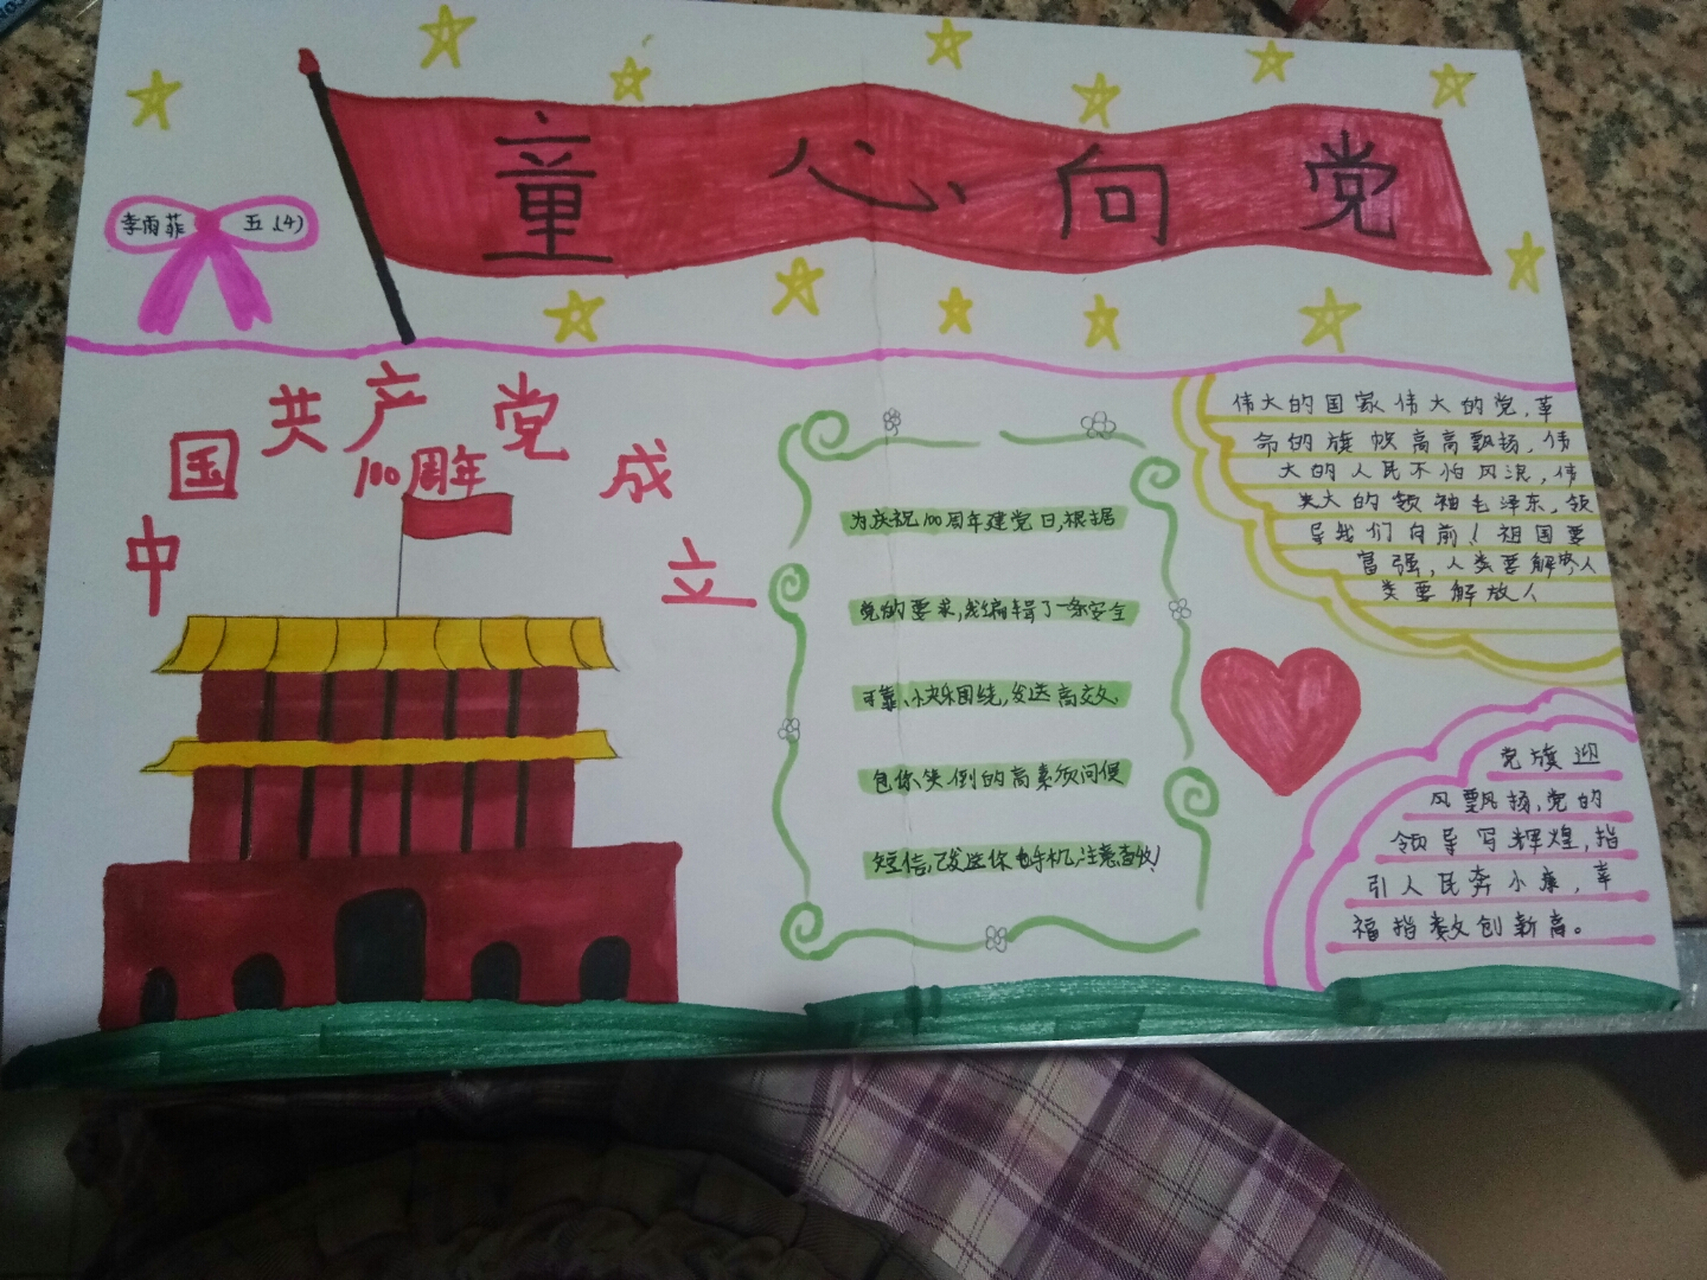 童心向党
李雨菲 五.(4)
中国共产党成立
100周年
为庆祝100周年建党日,根据
党的要求,我编辑了一条安全
可靠、快乐围绕,发送高效、
包你笑倒的高素质问候
短信,已发送你的手机,注意查收!
伟大的国家伟大的党,革
命的旗帜高高飘扬,伟
大的人民不怕风浪,伟
大的领袖毛泽东,领
导我们向前!祖国要
富强,人类要解放人
类要解放人
党旗迎
风飘扬,党的
领导写辉煌,指
引人民奔小康,幸
福指数创新高。